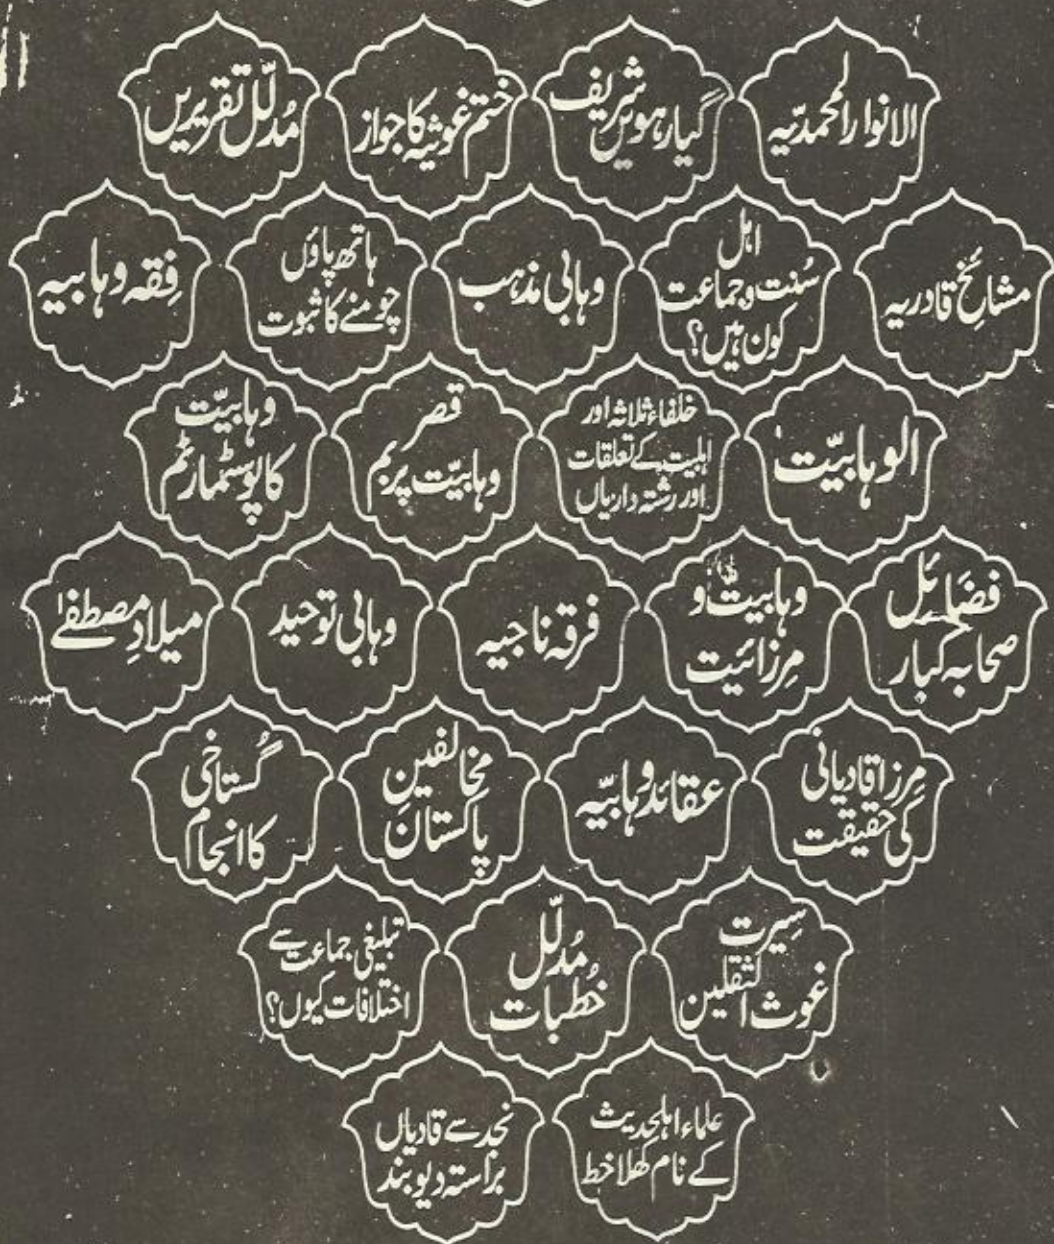 الانوار المحمدیّہ
گیارہویں شریف
ختم غوثیہ کا جواز
مُدلّل تقریریں
مشائخ قادریہ
اہل
سُنت و جماعت
کون ہیں؟
وہابی مذہب
ہاتھ پاؤں
چومنے کا ثبوت
فِقہ وہابیہ
الوہابیّت
خلفاء ثلاثہ اور
اہلبیت کے تعلقات
اور رشتہ داریاں
قصر
وہابیّت پر بم
وہابیّت
کا پوسٹمارٹم
فضائل
صحابہ کبار
وہابیّت و
مرزائیت
فرقہ ناجیہ
وہابی توحید
میلادِ مصطفےٰ
مرزا قادیانی
کی حقیقت
عقائد وہابیّہ
مخالفین
پاکستان
گستاخی
کا انجام
سِیرت
غوث الثقلین
مُدلّل
خُطبات
تبلیغی جماعت سے
اختلافات کیوں؟
علماء اہلحدیث
کے نام کھلا خط
نجد سے قادیاں
براستہ دیوبند